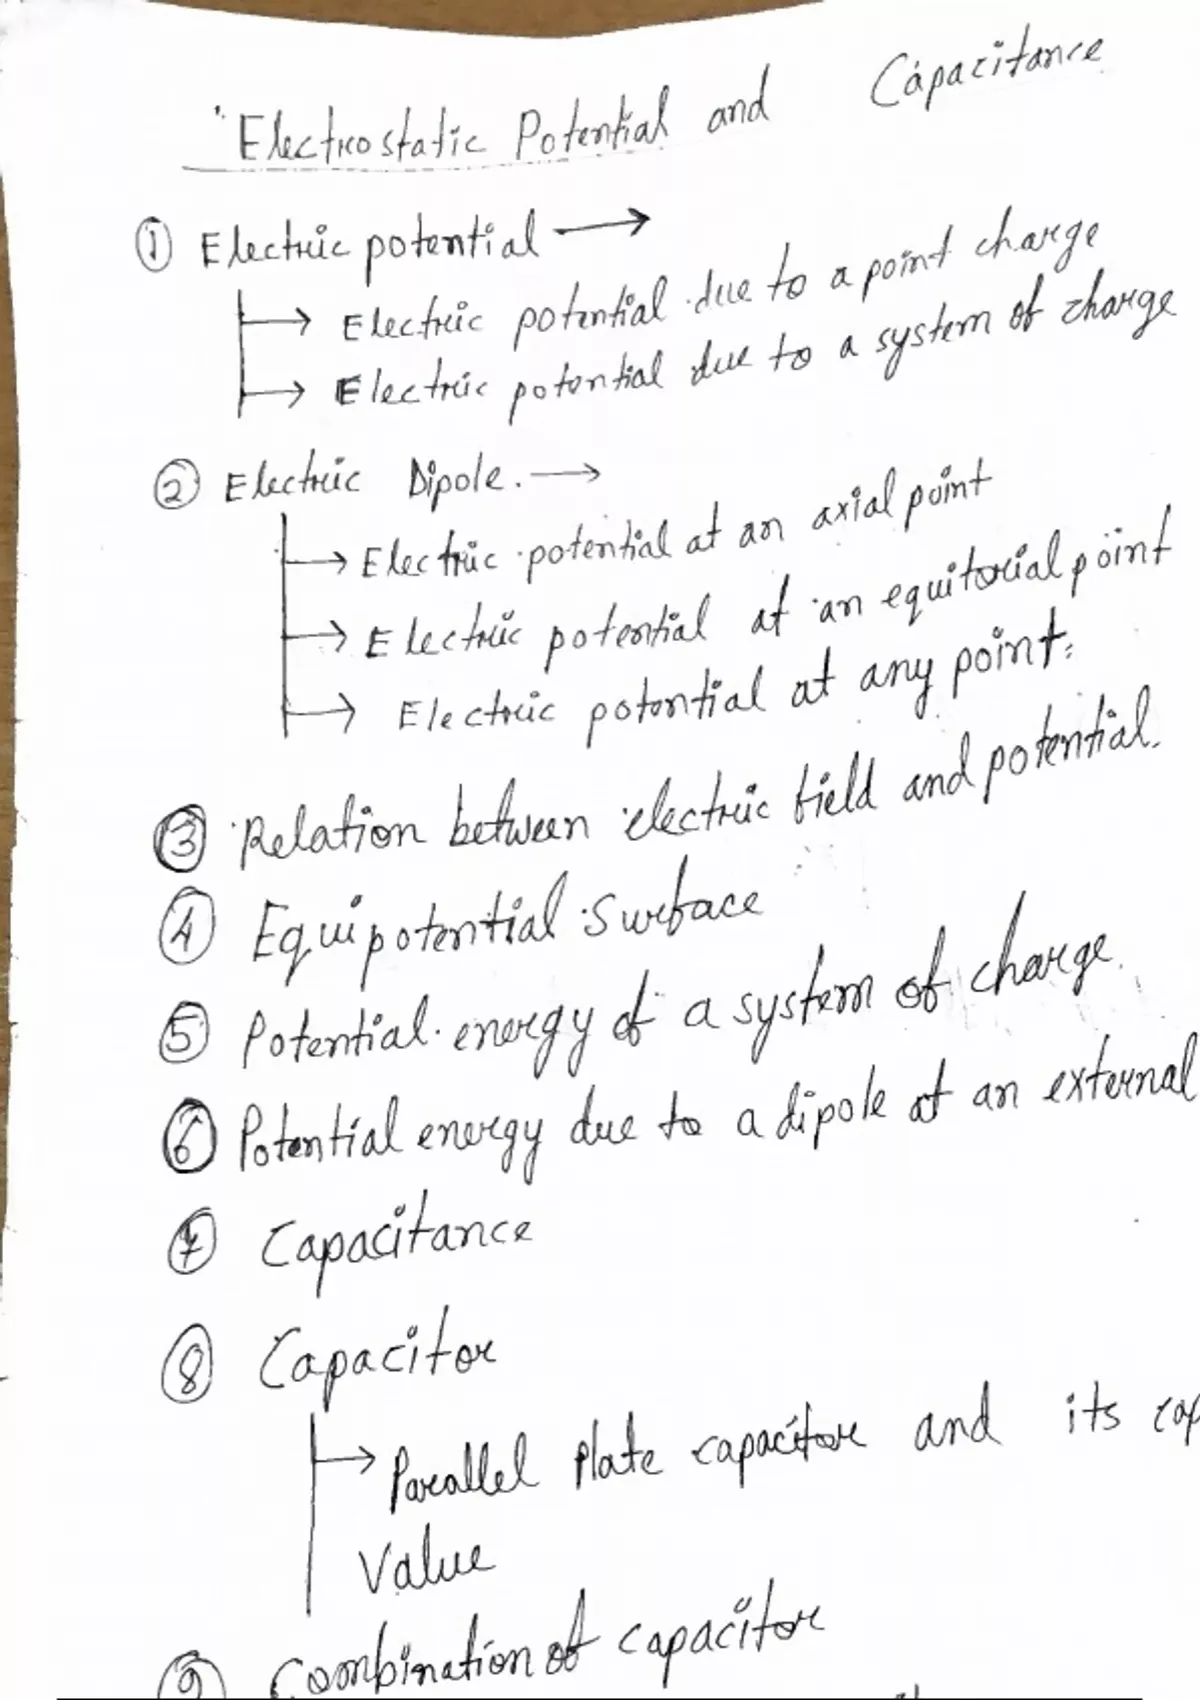 Electrostatic Potential and Capacitance
① Electric potential →
→ Electric potential due to a point charge
→ Electric potential due to a system of charge
② Electric Dipole. →
→ Electric potential at an axial point
→ Electric potential at an equitorial point
→ Electric potential at any point.
③ Relation between electric field and potential.
④ Equipotential Surface
⑤ Potential energy of a system of charge.
⑥ Potential energy due to a dipole at an external
⑦ Capacitance
⑧ Capacitor
→ Parallel plate capacitor and its cap
Value
⑨ Combination of capacitor